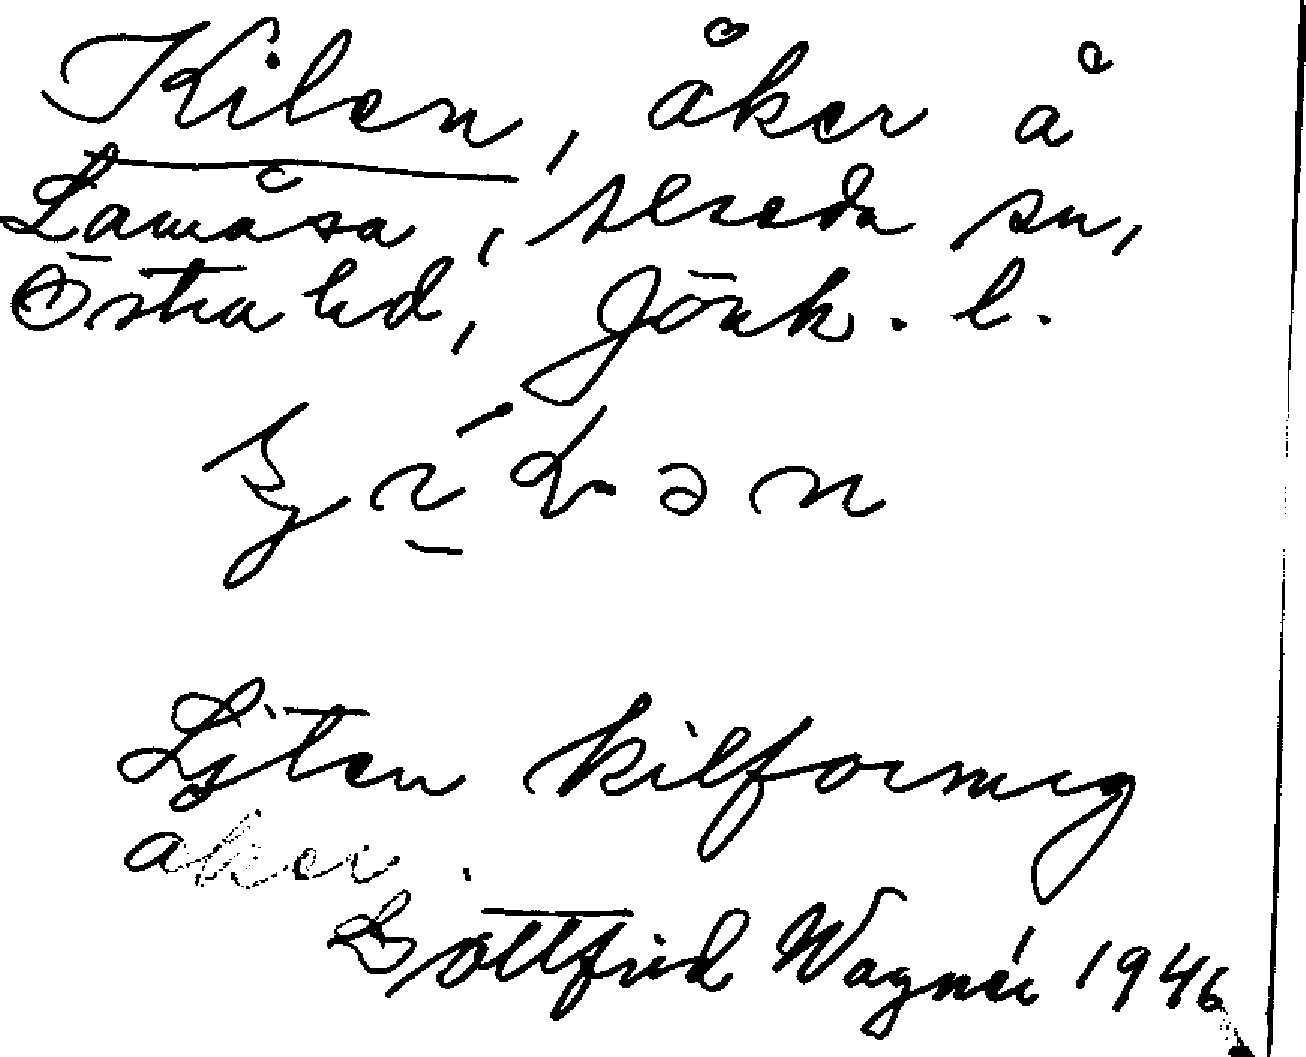 Kilen, åker å
Lamåsa, Alseda sn,
Östra hd, Jönk. l.
Liten kilformig
åker.
Gottfrid Wagnér 1946